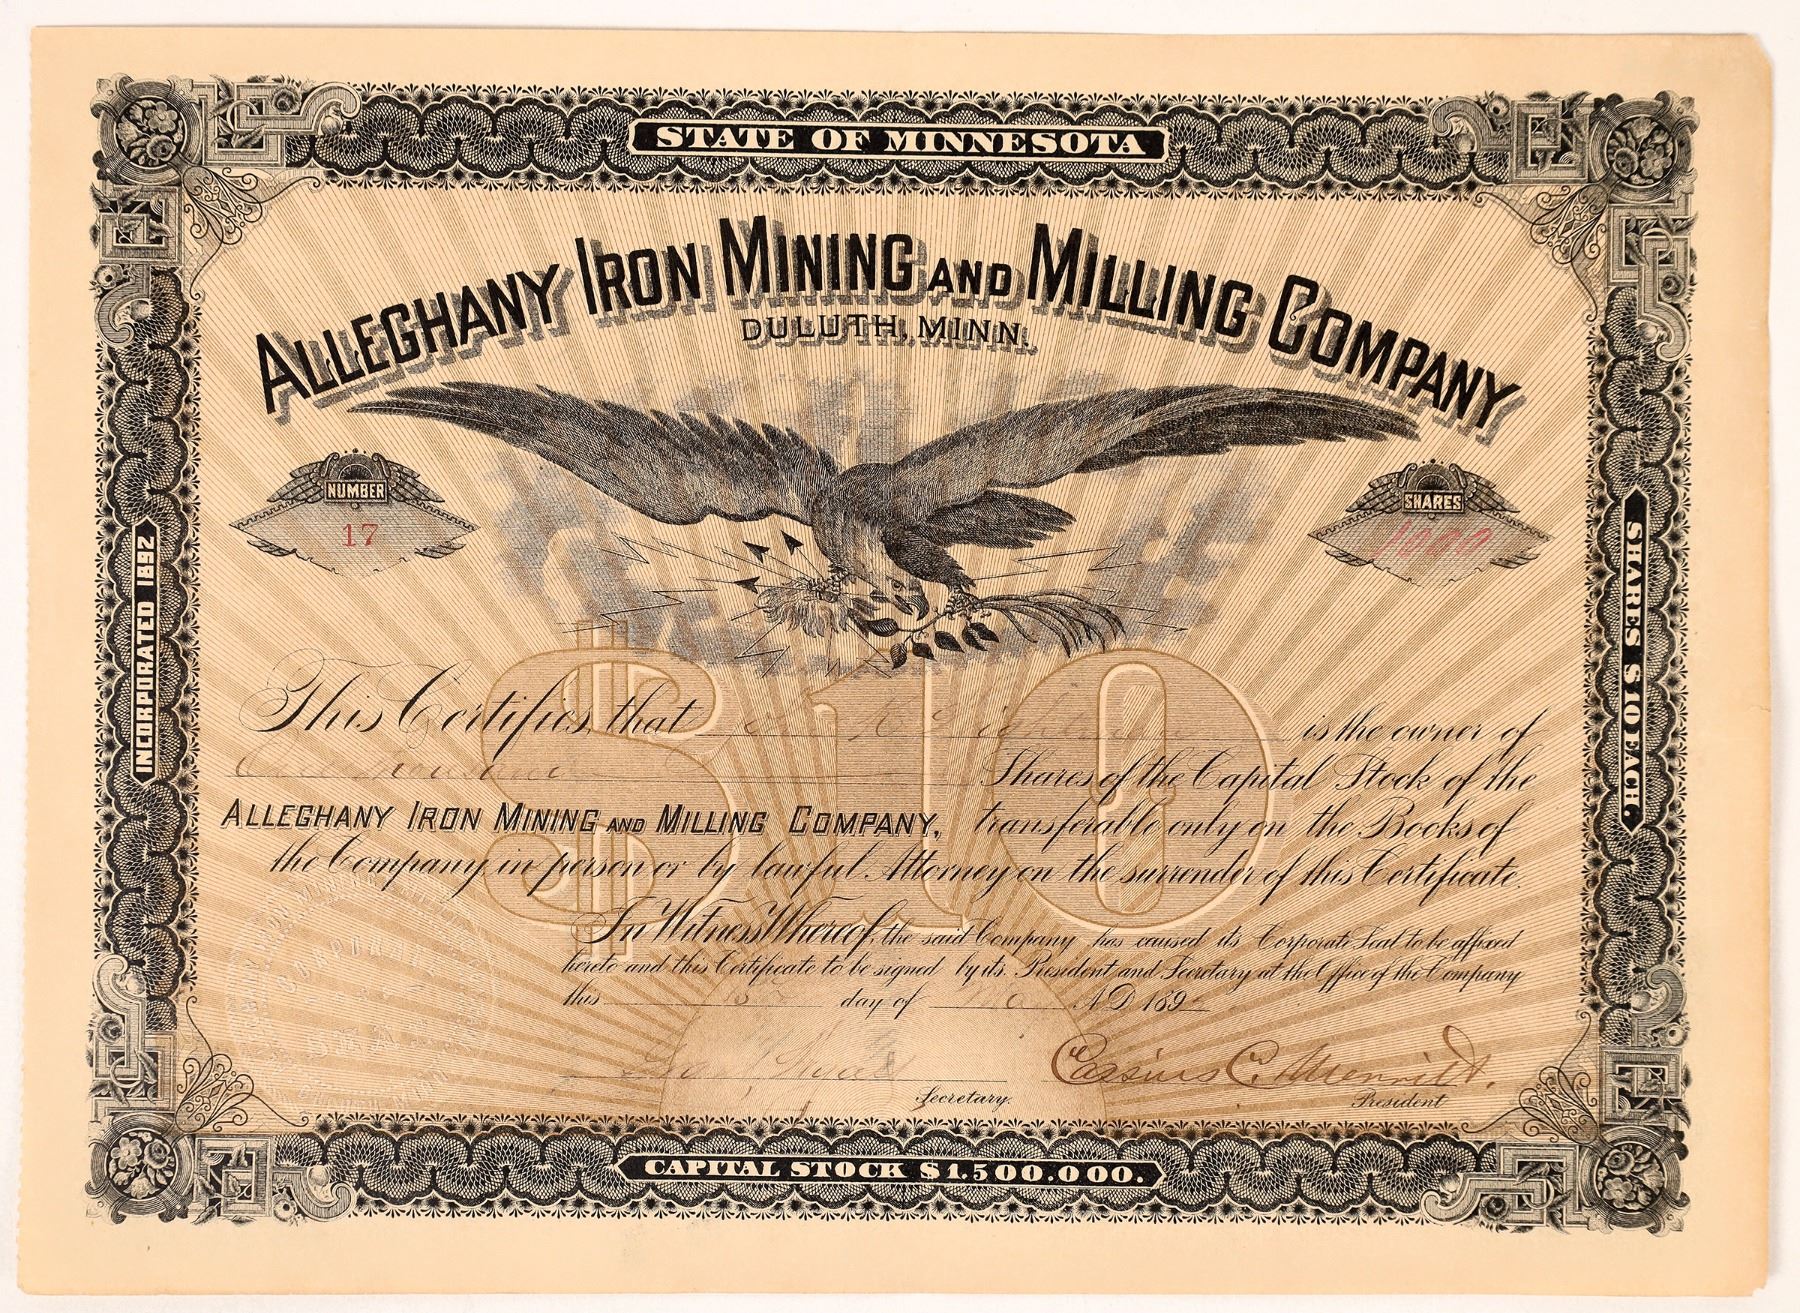 STATE OF MINNESOTA
ALLEGHANY IRON MINING AND MILLING COMPANY
DULUTH, MINN.
NUMBER
17
SHARES
1000
INCORPORATED 1892
SHARES $10 EACH.
$10
This Certifies that is the owner of
One Thousand Shares of the Capital Stock of the
ALLEGHANY IRON MINING AND MILLING COMPANY, transferable only on the Books of
the Company in person or by lawful Attorney on the surrender of this Certificate.
In Witness Whereof, the said Company has caused its Corporate Seal to be affixed
hereto and this Certificate to be signed by its President and Secretary at the Office of the Company
this day of A.D. 189
Cassius C. Merritt.
Secretary.
President
CORPORATE
SEAL
CAPITAL STOCK $1.500.000.